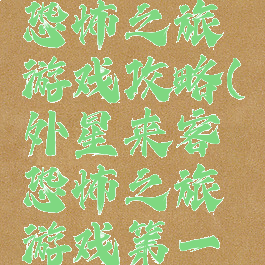 恐怖之旅
游戏攻略(
外星来客
恐怖之旅
游戏第一